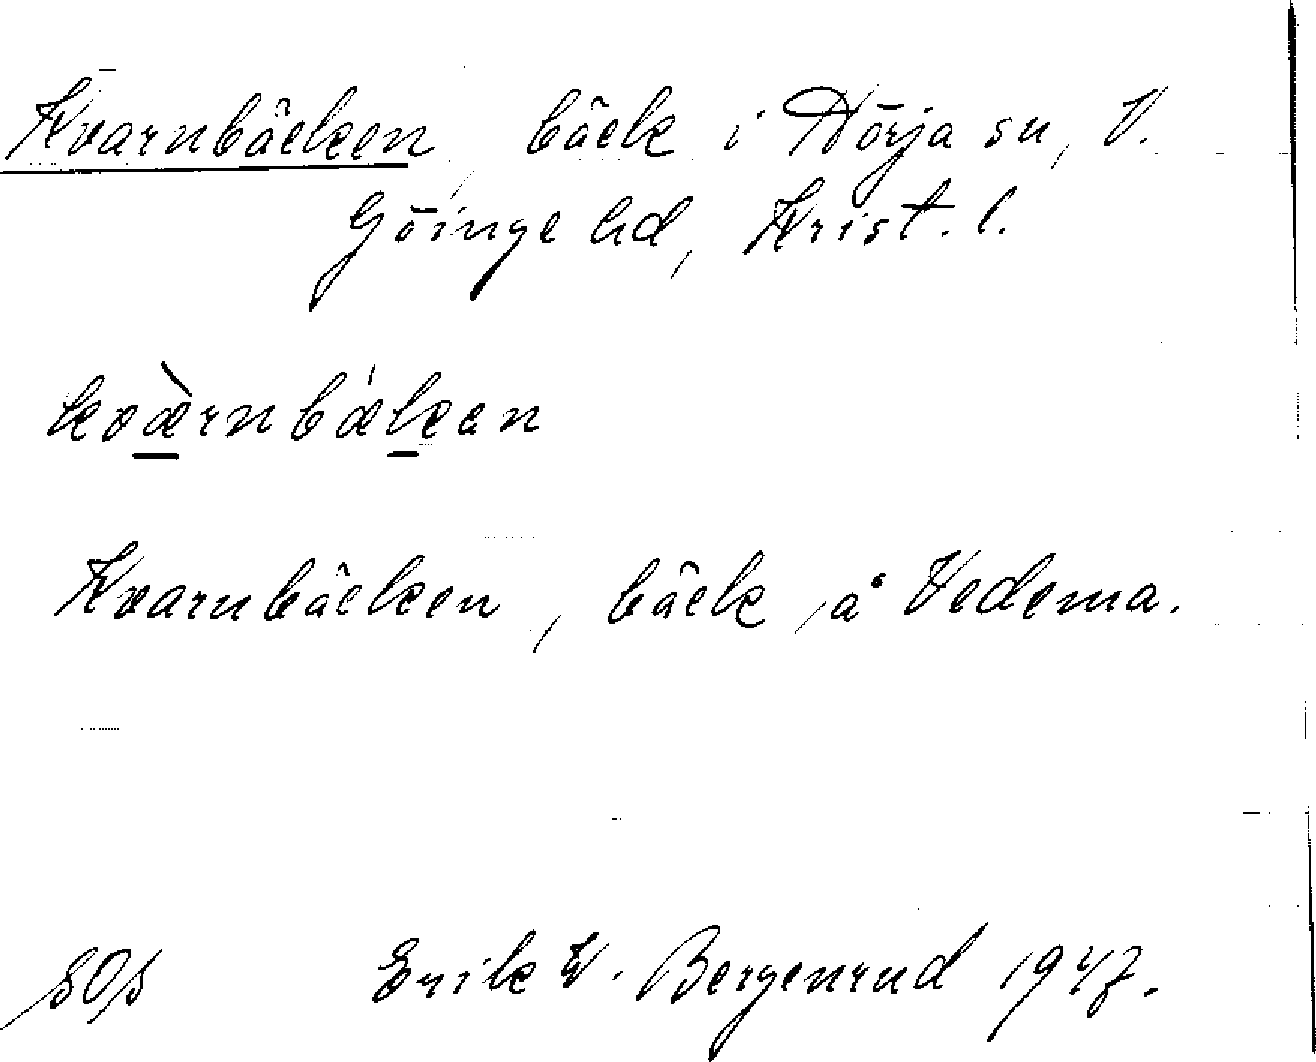 Kvarnbäcken, bäck i Nörja sn, V.
Göinge hd, Krist. l.
kvæ̀rnbǽken
Kvarnbäcken, bäck å Vedema.
Erik W. Bergenrud 1947.